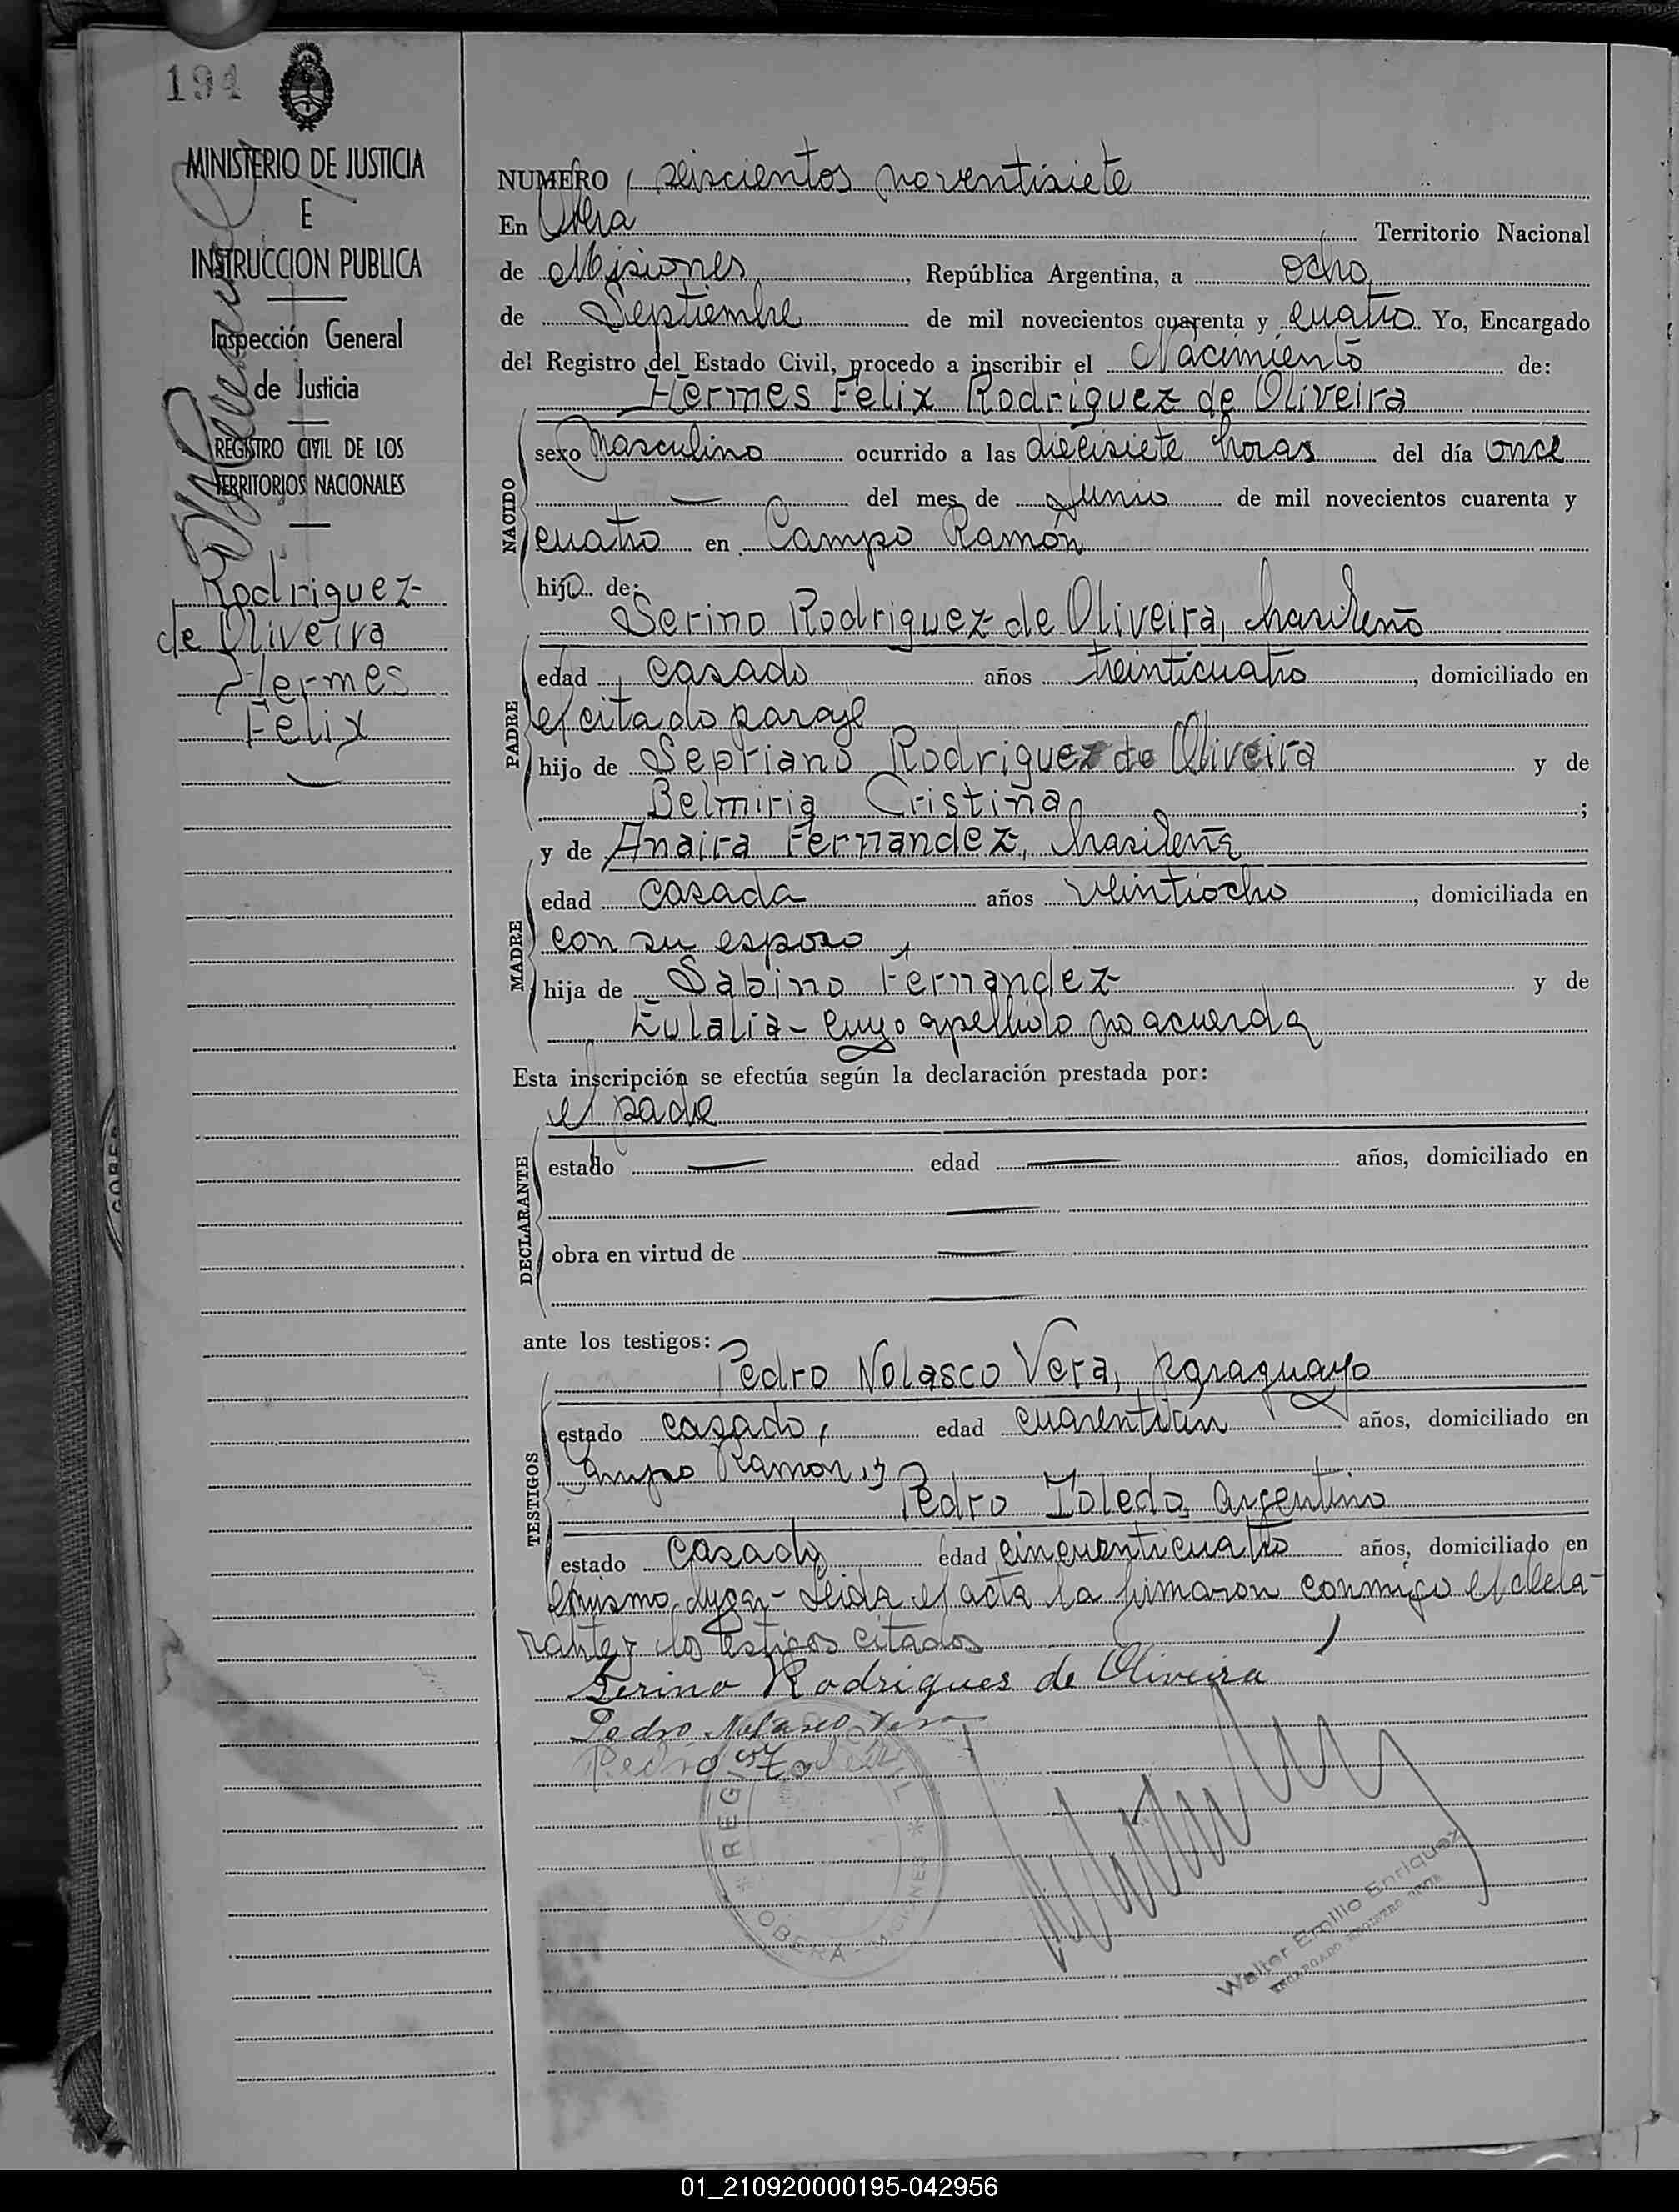 194
MINISTERIO DE JUSTICIA
E
INSTRUCCION PUBLICA
Inspección General
de Justicia
REGISTRO CIVIL DE LOS
TERRITORIOS NACIONALES
Rodriguez
de Oliveira
Hermes
Felix
NUMERO, seiscientos noventisiete
En Obera Territorio Nacional
de Misiones, República Argentina, a ocho
de Septiembre de mil novecientos cuarenta y cuatro. Yo, Encargado
del Registro del Estado Civil, procedo a inscribir el Nacimiento de:
Hermes Felix Rodriguez de Oliveira
NACIDO
sexo Masculino ocurrido a las diecisiete horas del día once
— del mes de Junio de mil novecientos cuarenta y
cuatro en Campo Ramón
hijo de:
Serino Rodriguez de Oliveira, brasileño
PADRE
edad casado años treinticuatro, domiciliado en
el citado paraje
hijo de Sepriano Rodriguez de Oliveira y de
Belmiria Cristina;
y de Anaira Fernandez, brasileña
MADRE
edad casada años veintiocho, domiciliada en
con su esposo,
hija de Sabino Fernandez y de
Eulalia - cuyo apellido no acuerda
Esta inscripción se efectúa según la declaración prestada por:
el padre
DECLARANTE
estado — edad — años, domiciliado en
—
obra en virtud de —
—
ante los testigos:
Pedro Nolasco Vera, paraguayo
TESTIGOS
estado casado, edad cuarentiun años, domiciliado en
Campo Ramon, y
Pedro Toledo, argentino
estado casado edad cincuenticuatro años, domiciliado en
el mismo lugar - Leida el acta la firmaron conmigo el decla-
rante y los testigos citados
Serino Rodrigues de Oliveira
Pedro Nolasco Vera
Pedro Toledo
REGI
OBERA - MISIONES
Walter Emilio Enriquez
ENCARGADO REGISTRO CIVIL
GOBER
01_210920000195-042956